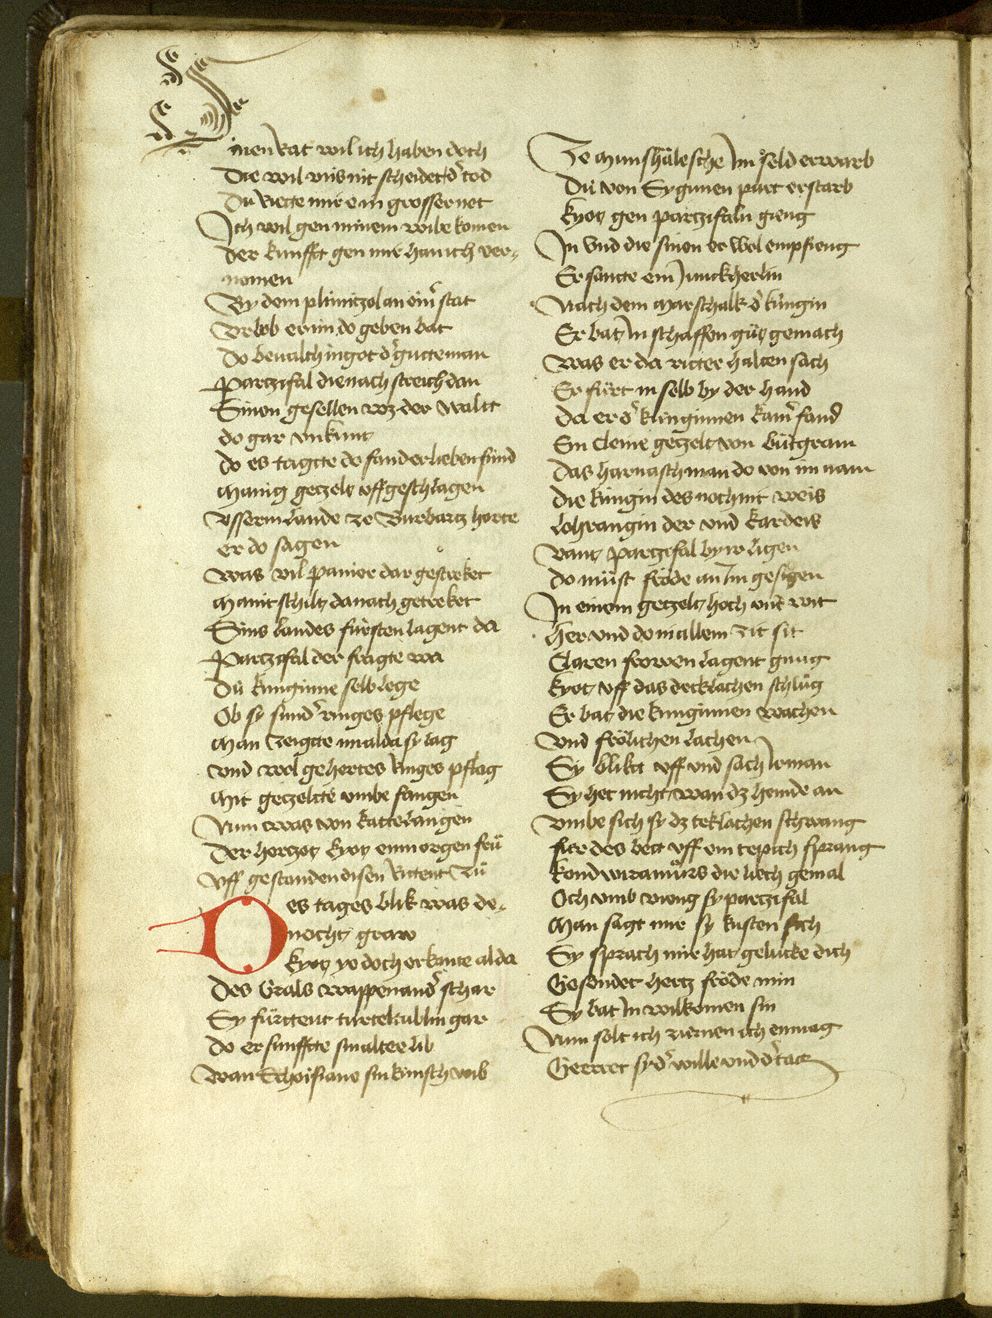 Sinen Rat wil ich haben doch
Die wil vns nit scheidet d' tod
Du Riete mir e in grosser not
Ich wil gen minem wibe komen
Der kunfft gen mir han ich ver-
nomen
By dem plimitzol an ein' stat
Vrlob er im do geben bat
Do beualch in got d' gutte man
Partzifal die nach streich dan
Sinen gesellen wz der waltt
do gar vnkunt
do es tagtte do fand er lieben fund
Manig getzelt vff geschlagen
Vsserm lande ze Burbartz horte
er do sagen
Was vil Panier dar gestecket
Manic schilt danach getrecket
Sins landes fürsten lagent da
Partzifal der fragte wa
Dü kunginne selb lege
Ob sy sund' ringes pflege
Man zeigtte im alda sy lag
Vnd wol gehertes Ringes pflag
Mit getzeltte vmbe fangen
Nun was von kattelangen
Der hertzog kyot enmorgen fru
Vff gestanden disen Ritent zu
Des tages blik was de-
nocht graw
kyot yo doch erkante alda
Des Grals wappen and' schar
Sy fürttent turteltublin gar
Do ersunffte sin alter lib
Wan Schoisiane sin künsch wib
Ze Munshalesche Im seld erwarb
Dü von Sygunen purt erstarb
Kyot gen partzifaln gieng
In vnd die sinen er wol empfieng
Er sante ein Junckherlin
Nach dem Marschalk d' kungin
Er bat In schaffen gut gemach
Was er da ritter halten sach
Er fürt in selb by der hand
Da er d' kunginnen kam' fand
Ein cleine getzelt von butgram
Das harnasch man do von im nam
Die kungin des noch nit weis
Lohrangin der vnd kardeis
Vant partzifal by ir ligen
Do müst fröde an Im gesigen
In einem getzelt hoch vnd wit
Her vnd do in allem zit sit
Claren frowen lagent gnug
Kyot vff das decklachen schlug
Er bat die kunginnen wachen
Vnd frölichen lachen
Sy blikt vff vnd sach Ir man
Sy het nicht wan dz hemde an
Vmbe sich sy dz teklachen schwang
für des bett vff ein tepich sprang
kondwiramurs die liech gemal
Och vmb vieng sy partzifal
Man sagt mir sy kusten sich
Sy sprach mir hat gelucke dich
Gesendet hertz fröde min
Sy bat In wilkomen sin
Nun solt ich zürnen ich enmag
Geeret sy d' wille vnd d' tag